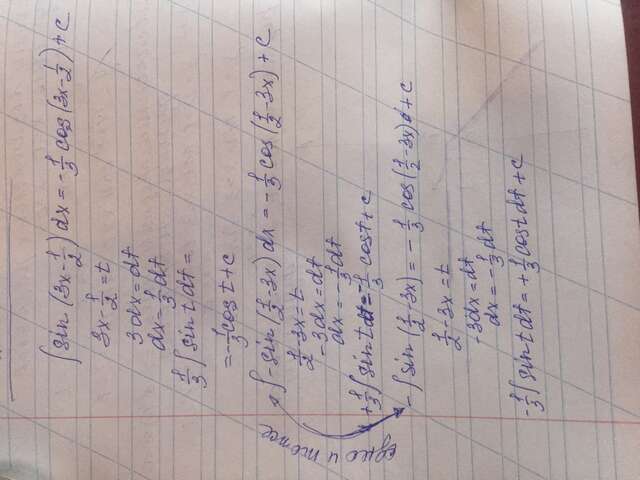 ∫ sin (3x - 1/2) dx = -1/3 cos (3x - 1/2) + C
3x - 1/2 = t
3dx = dt
dx = 1/3 dt
1/3 ∫ sin t dt =
= -1/3 cos t + C
∫ -sin (1/2 - 3x) dx = -1/3 cos (1/2 - 3x) + C
1/2 - 3x = t
-3dx = dt
dx = -1/3 dt
+1/3 ∫ sin t dt = -1/3 cos t + C
- ∫ sin (1/2 - 3x) = -1/3 cos (1/2 - 3x) + C
1/2 - 3x = t
-3dx = dt
dx = -1/3 dt
-1/3 ∫ sin t dt = +1/3 cos t dt + C
одно и тоже